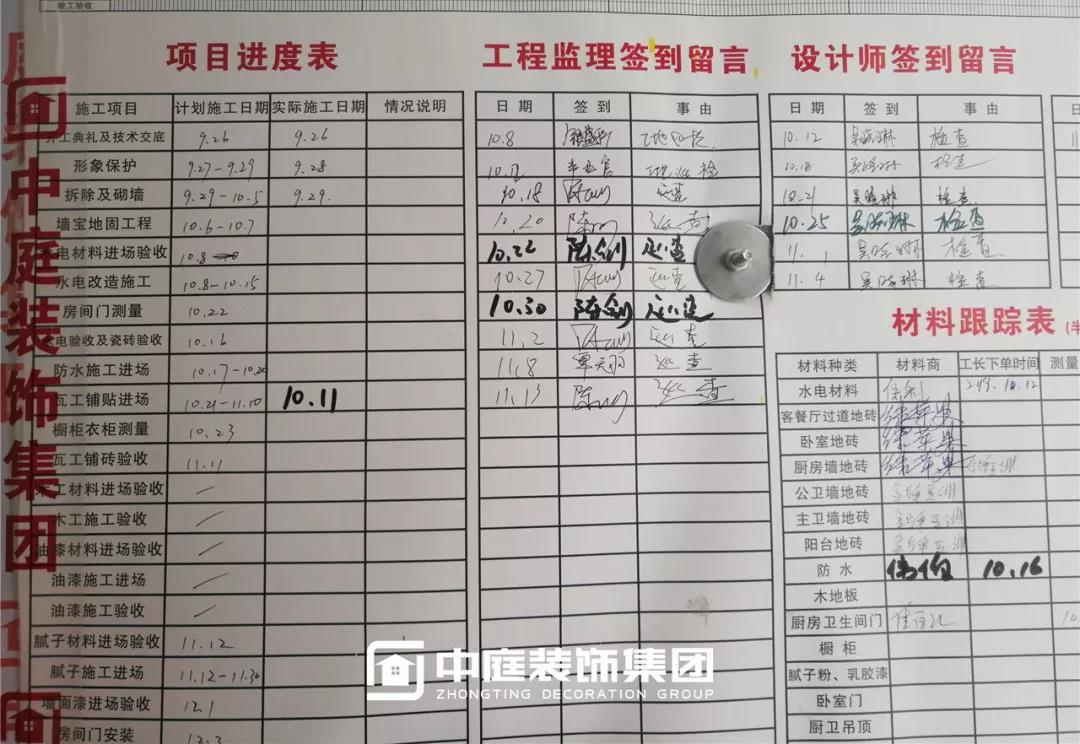 竣工验收
项目进度表
施工项目 计划施工日期 实际施工日期 情况说明
开工典礼及技术交底 9.26 9.26
形象保护 9.27-9.29 9.28
拆除及砌墙 9.29-10.5 9.29.
墙宝地固工程 10.6-10.7
水电材料进场验收 10.8
水电改造施工 10.8-10.15
房间门测量 10.22
水电验收及瓷砖验收 10.16
防水施工进场 10.17-10.20
瓦工铺贴进场 10.21-11.10 10.11
橱柜衣柜测量 10.23
瓦工铺砖验收 11.11
木工材料进场验收 /
木工施工验收 /
油漆材料进场验收 /
油漆施工进场 /
油漆施工验收 /
腻子材料进场验收 11.12
腻子施工进场 11.12-11.30
墙面漆进场验收 12.1
房间门安装 12.3
工程监理签到留言
日期 签到 事由
10.8
10.12
10.18 巡查
10.20 巡查
10.22 陈剑 巡查
10.27 巡查
10.30 陈剑 巡查
11.2 巡查
11.8 巡查
11.13 巡查
设计师签到留言
日期 签到 事由
10.12 检查
10.18 检查
10.21 检查
10.25 检查
11.1 检查
11.4 检查
材料跟踪表
材料种类 材料商 工长下单时间 测量
水电材料 伟伯 2019.10.12
客餐厅过道地砖 红苹果
卧室地砖 红苹果
厨房墙地砖 红苹果
公卫墙地砖
主卫墙地砖
阳台地砖
防水 伟伯 10.16
木地板
厨房卫生间门
橱柜
腻子粉、乳胶漆
卧室门
厨卫吊顶
中庭装饰集团
中庭装饰集团
ZHONGTING DECORATION GROUP